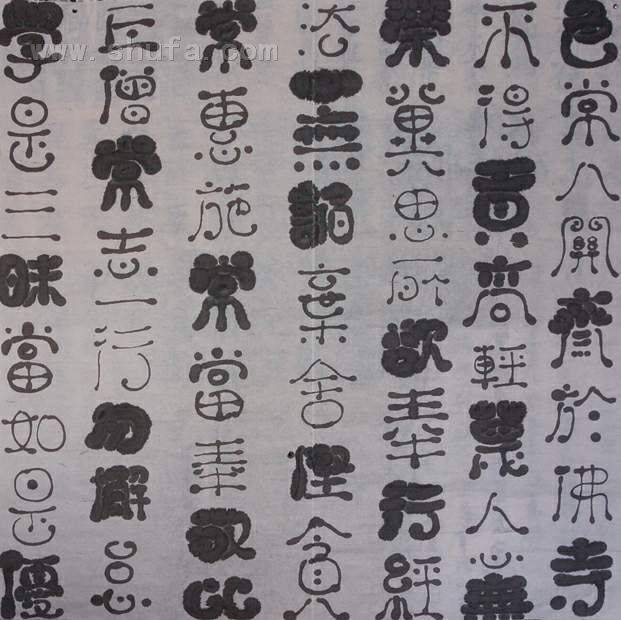 色常八關齋於佛寺
不得貢高輕蔑人心無
榮冀思所欲奉行經
法心無諂棄舍慳貪
常惠施常當奉敬比
丘僧常志一行勿懈怠
學是三昧當如是優
www.shufa.com